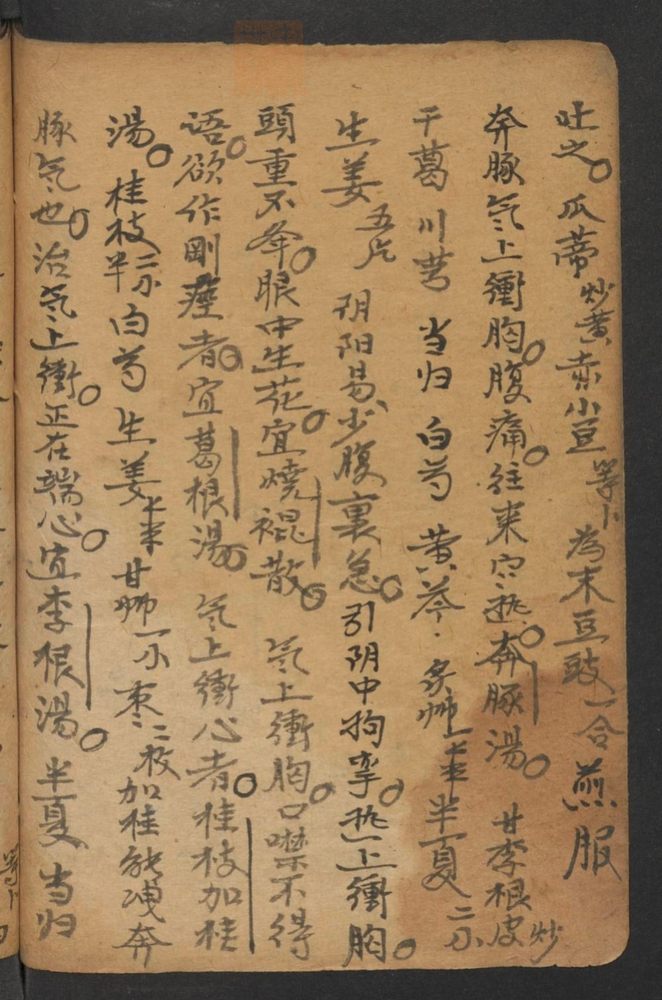 吐之。瓜蒂炒黄赤小豆等卜為末豆豉一合煎服
奔豚氣上衝胸。腹痛。往來寒热。奔豚湯。甘李根皮炒
干葛 川芎 当归 白芍 黄芩 炙艸 半夏二
生姜五片 阴阳易。少腹裏急。引阴中拘挛。热上衝胸。
頭重不举。眼中生花。宜燒裩散。氣上衝胸。口噤不得
语。欲作剛痙者。宜葛根湯。氣上衝心者。桂枝加桂
湯。桂枝 白芍 生姜 甘艸一 枣二枚加桂能洩奔
豚氣也。治氣上衝。正在端心。宜李根湯。半夏 当归